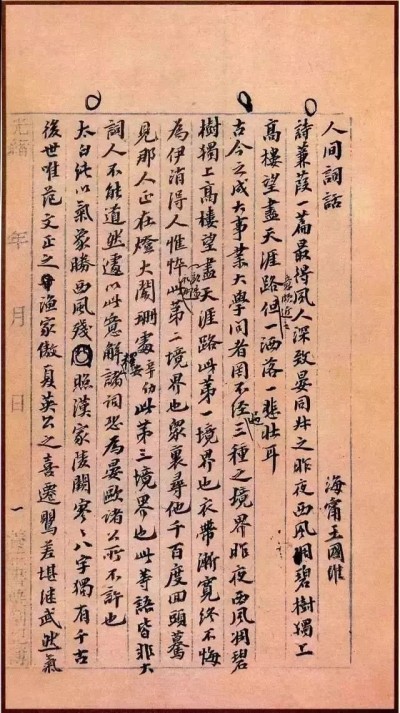 人间詞話 海甯王國維
詩蒹葭一篇最得風人深致晏同叔之昨夜西風凋碧樹獨上
高樓望盡天涯路意頗近之但一洒落一悲壯耳
古今之成大事業大學問者罔不經三種之境界昨夜西風凋碧
樹獨上高樓望盡天涯路此第一境界也衣帶漸寬終不悔
為伊消得人憔悴歐陽永叔此第二境界也眾裏尋他千百度回頭驀
見那人正在燈火闌珊處辛幼安此第三境界也此等語皆非大
詞人不能道然遽以此意解諸詞恐為晏歐諸公所不許也
太白純以氣象勝西風殘照漢家陵闕寥々八字獨有千古
後世唯范文正之漁家傲夏英公之喜遷鶯差堪繼武然氣
光緒 年 月 日 一